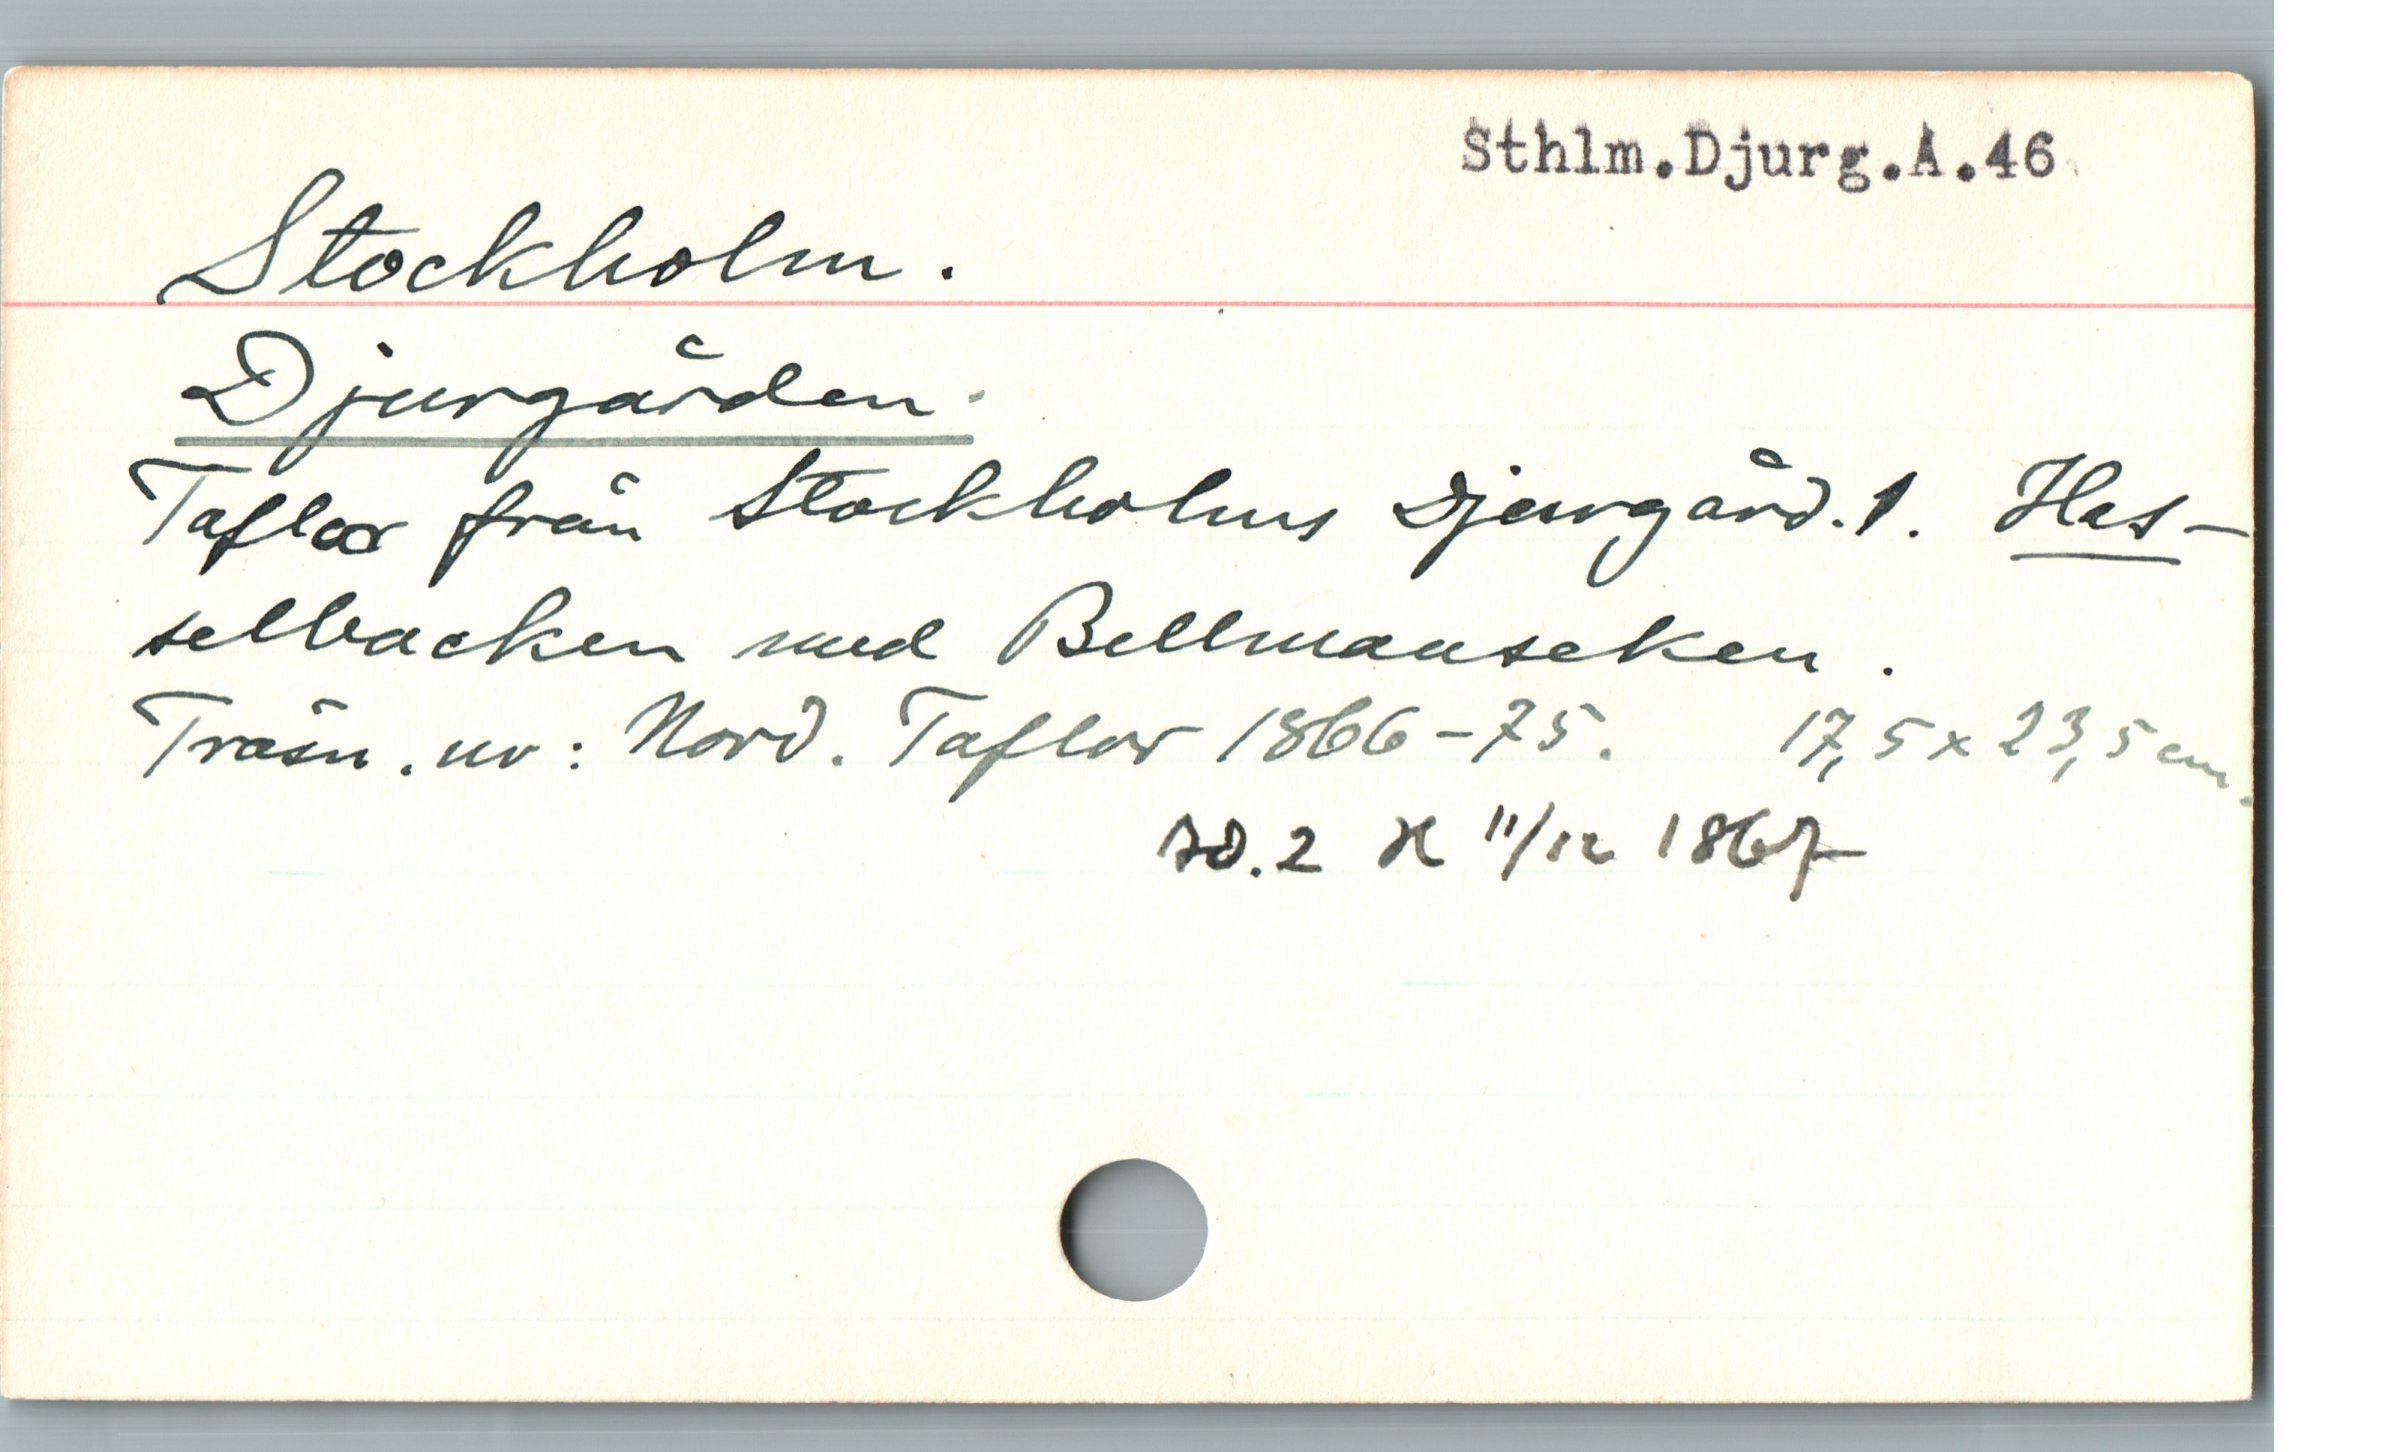 Sthlm.Djurg.A.46
Stockholm.
Djurgården.
Taflor från Stockholms Djurgård. 1. Has-
selbacken med Bellmanseken.
Träsn. ur: Nord. Taflor 1866-75. 17,5 x 23,5 cm.
2 11/12 1867